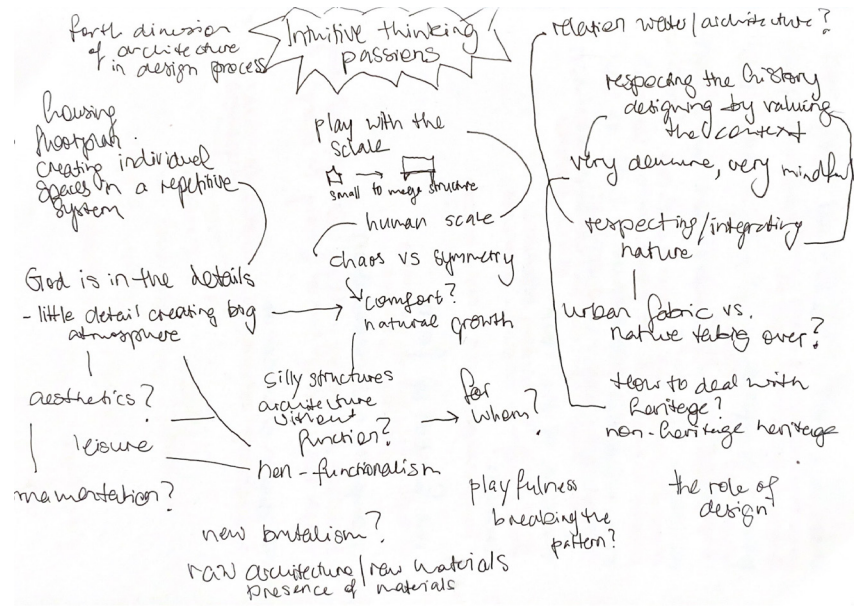 forth dimension
of architecture
in design process
Intuitive thinking
passions
relation water/architecture?
respecting the history
designing by valuing
the context
very demure, very mindful
respecting/integrating
nature
urban fabric vs.
nature taking over?
How to deal with
heritage?
non-heritage heritage
the role of
design
housing
floorplan
creating individual
spaces in a repetitive
system
play with the
scale
small to mega structure
human scale
chaos vs symmetry
comfort?
natural growth
God is in the details
- little detail creating big
atmosphere
aesthetics?
leisure
silly structures
architecture
without
function?
for
whom?
non-functionalism
playfulness
breaking the
pattern?
new brutalism?
raw architecture/raw materials
presence of materials